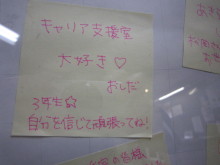 キャリア支援室
大好き♡
おしだ
3年生☆
自分を信じて頑張ってね!